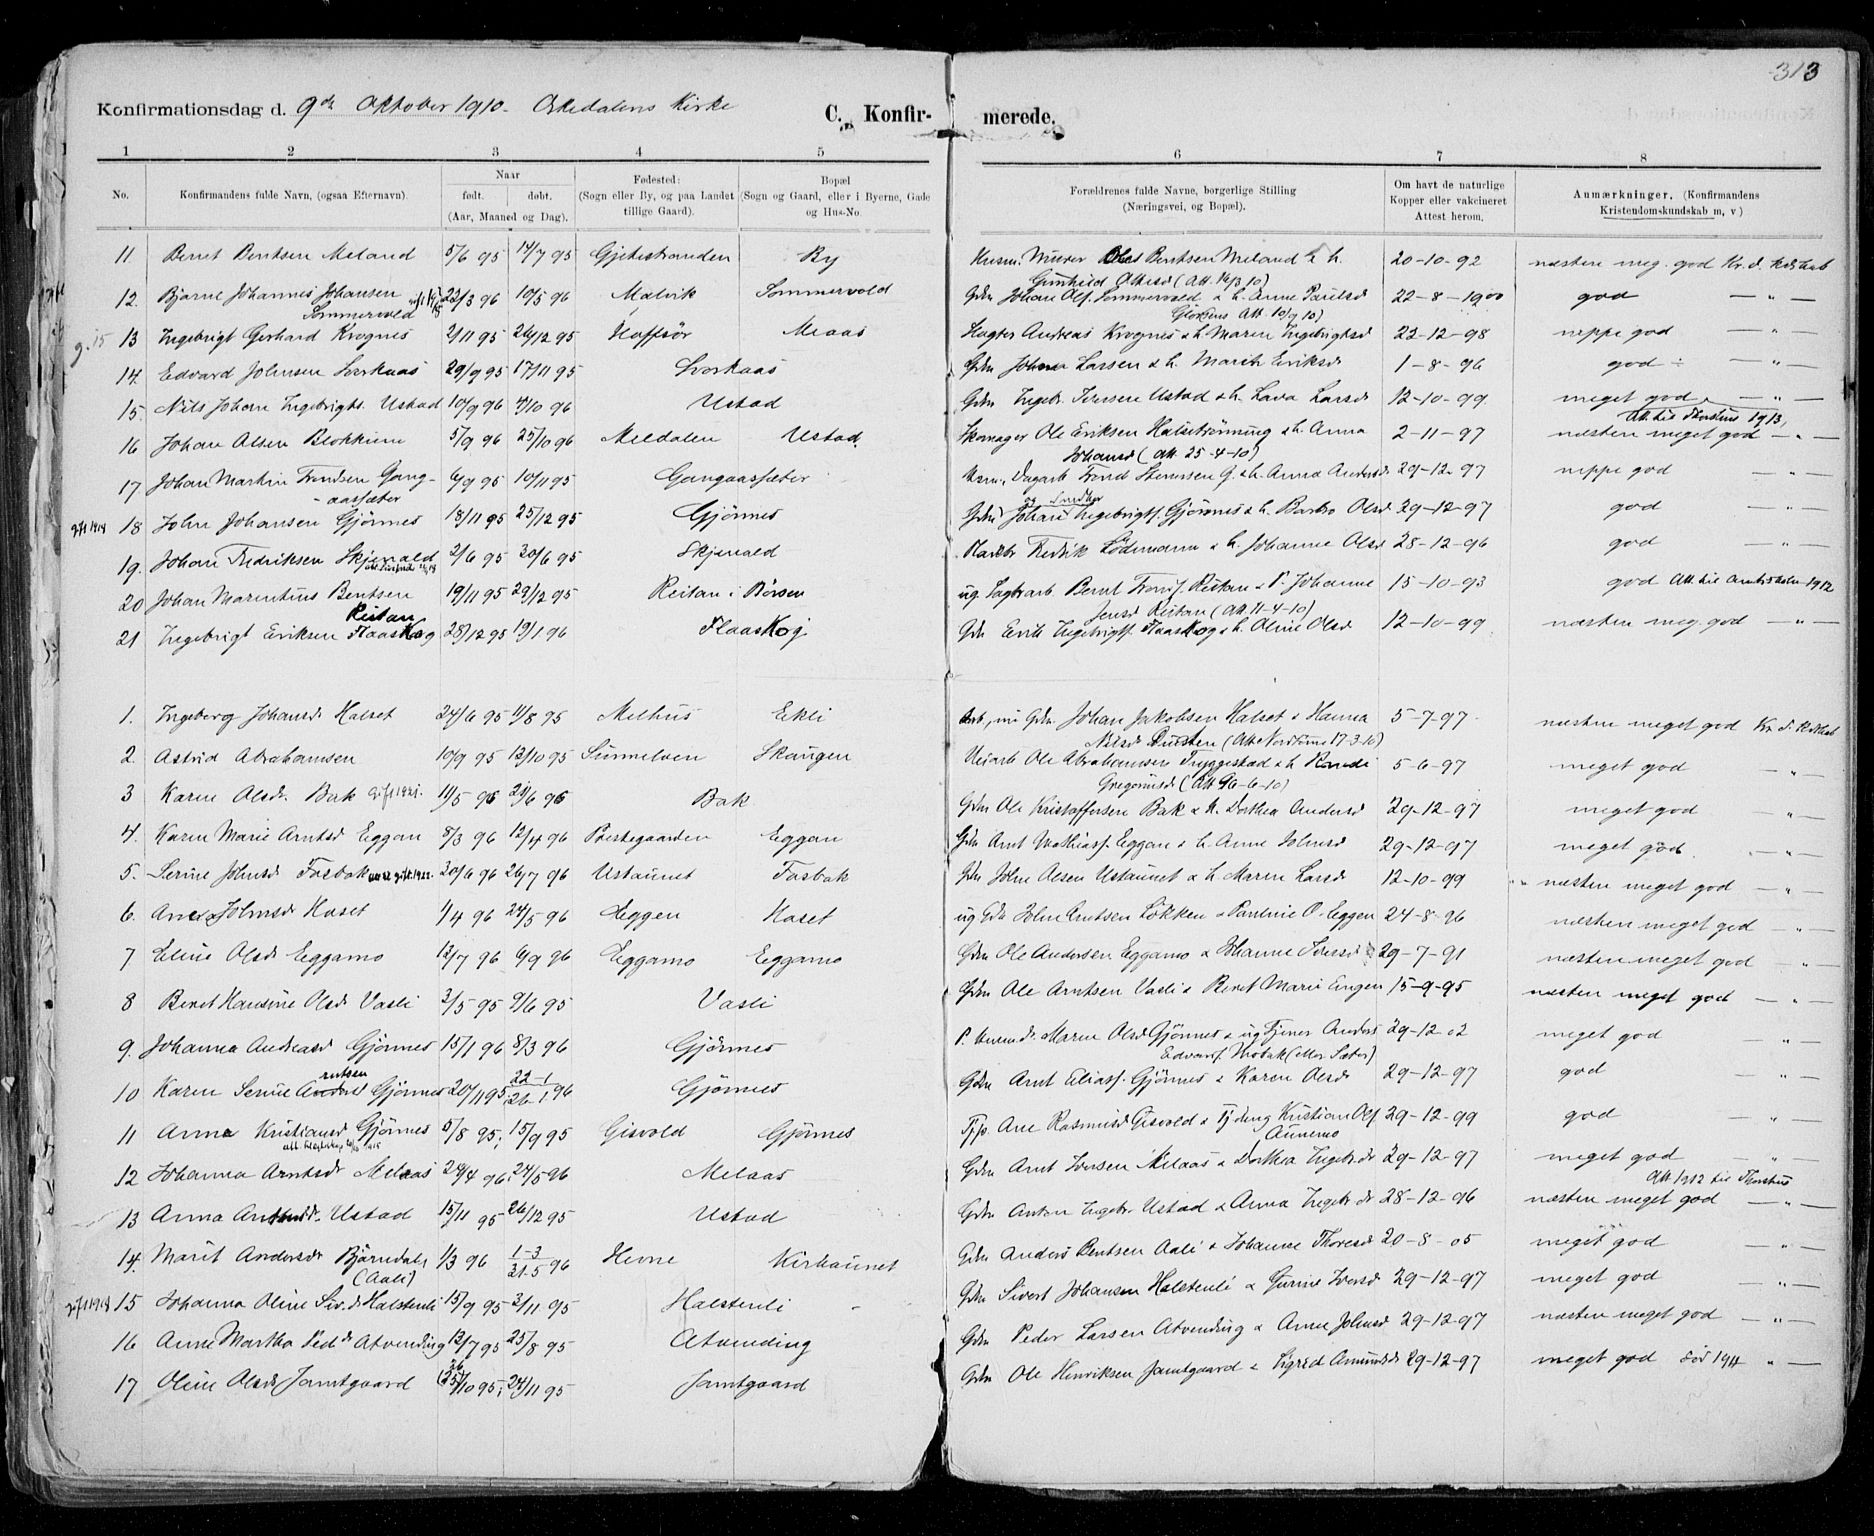 313
Konfirmationsdag d. 9de Oktober 1910. Orkedalens Kirke C. Konfir- merede.
1 2 3 4 5 6 7 8
No. Konfirmandens fulde Navn, (ogsaa Efternavn). Naar født. døbt. (Aar, Maaned og Dag). Fødested: (Sogn eller By, og paa Landet tillige Gaard). Bopæl (Sogn og Gaard, eller i Byerne, Gade og Hus-No. Forældrenes fulde Navne, borgerlige Stilling (Næringsvei, og Bopæl). Om havt de naturlige Kopper eller vakcineret Attest herom. Anmærkninger. (Konfirmandens Kristendomskundskab m, v)
11 Bernt Bentsen Meland 5/6 95 14/7 95 Gjetestranden By Husm. Murer Bentsen Meland & h. 20-10-92 næsten meg. god Kr.d.
Gunhild (Att. 14/3 10)
12. Bjarne Johannes Johansen 22/3 96 10/5 96 Malvik Sommervold Gdm Johan Olsf. Sommervold & h. Anne Paulsd 22-8-1900 god — " —
Sommervold (Att 10/9 10)
g. 15 13 Ingebrigt Gerhard Krognes 2/11 95 26/12 95 Moaas Andreas Krognes & h. Maren Ingebrigtsd 22-12-98 neppe god — " —
14. Edvard Johnsen Sorkaas 29/9 95 17/11 95 Sorkaas Gdm Larsen & h. Marith Eriksd 1-8-96 god — " —
15. Nils Johan Ingebrigts. Ustad 10/9 96 4/10 96 Ustad Gdm Ingebr. Iversen Ustad & h. Larsd 12-10-99 meget god — " —
Att. til 1913,
16 Johan Olsen Blokkum 5/9 96 25/10 96 Meldalen Ustad. Skomager Ole Eriksen & h. Anna 2-11-97 næsten meget god — " —
Johansd (Att. 25-4-10)
17 Johan Martin Trondsen Gang- 6/9 95 10/11 95 Gangaassæter Husm. Dagarb. Trond G. & h. Anna Andersd 29-12-97 neppe god — " —
aassæter
gift 1914 18 John Johansen Gjönnes 18/11 95 25/12 95 Gjönnes Gdm Johan Ingebrigtsf. Gjönnes & h. Barbro Olsd 29-12-97 god — " —
19. Johan Fredriksen Skjenald 2/6 95 20/6 95 Skjenald Fredrik Lödemann & h. Johanne Olsd 28-12-96 god — " —
20 Johan Marentius Bentsen 19/11 95 29/12 95 Reitan i Börsen ug. Bernt Reitan & P. Johanne 15-10-93 god Att. til Amtsskolen 1912
Reitan Jensd Reitan (Att 11-4-10)
21 Ingebrigt Eriksen Flaaskog 28/12 95 19/1 96 Flaaskog Gdm Erik Ingebrigtsf. Flaaskog & h. Oline Olsd 12-10-99 næsten meg. god — " —
1. Ingeborg Johansd. Halset 24/6 95 11/8 95 Melhus Ekli Gdm. Johan Jakobsen Halset & Hanna 5-7-97 næsten meget god
Nilsd (Att. 17-3-10)
2. Astrid Abrahamsen 10/9 95 13/10 95 Sunnelven Skaugen Ole Abrahamsen Tryggestad & h. Randi 5-6-97 meget god — " —
Gregoriusd (Att. 6-6-10)
3 Karen Olsd. Bak gift 1921. 11/5 96 21/6 96 Bak Gdm Ole Kristoffersen Bak & h. Dorthea Andersd 29-12-97 meget god — " —
4. Karen Marie Arntsd Eggan 8/3 96 12/4 96 Prestegaarden Eggan Gdm Arnt Mathiasf. Eggan & h. Anne Johnsd 29-12-97 meget god. — " —
5. Serine Johnsd Fosbak gift 1922. 20/6 96 26/7 96 Ustaunet Fosbak Gdm John Olsen Ustaunet & h. Maren Larsd 12-10-99 næsten meget god — " —
6. Ane Johnsd Haset 1/4 96 24/5 96 Eggen Haset ug. Gdm John Arntsen Lökken & Pauline O. Eggen 24-8-96 næsten meget god — " —
7 Eline Olsd. Eggamo 12/7 96 6/9 96 Eggamo Eggamo Gdm Ole Andersen Eggamo & Johanne Iversd 29-7-91 næsten meget god — " —
8 Beret Hansine Olsd Vasli 3/5 95 9/6 95 Vasli Gdm Ole Arntsen Vasli & Beret Marie Engen 15-9-95 næsten meget god — " —
9. Johanna Andreasd Gjönnes 15/1 96 8/3 96 Gjönnes P. Maren Olsd Gjönnes & ug Tjener Anders 29-12-02 meget god — " —
Edvardsf. Mobak (eller Sæter)
10 Karen Serine Arntsen Gjönnes 20/11 95 22-1 26-1 96 Gjönnes Gdm Arnt Eliasf. Gjönnes & Karen Olsd 29-12-97 god — " —
11 Anna Kristiansd Gjönnes 5/8 95; 15/9 95 Gisvold Gjönnes Tj.p. Ane Rasmusd Gisvold & Tj.dreng Kristian Olsf. 29-12-99 god — " —
Aunemo
12 Johanna Arntsd Melaas 24/4 96; 24/5 96 Melaas Gdm Arnt Iversen Melaas & Dorthea Ingebr.dr 29-12-97 meget god — " —
Att 1912 til
13 Anna Antonsd. Ustad 15/11 95 26/12 95 Ustad Gdm Anton Ingebr. Ustad & Anna Ingebr.dr 28-12-96 næsten meget god — " —
14. Marit Andersdr Bjørndal 1/3 96 1-3 31-5 96 Hevne Kirkaunet Gdm Anders Bentsen Aali & Johanne Thoresd 20-8-05 meget god — " —
(Aali)
gift 1918 15 Johanna Oline Siv.d. Halstenli 15/9 95 3/11 95 Halstenli Gdm Sivert Johansen Halstenli & Gurine Iversd 29-12-97 meget god — " —
16 Anne Martha Ped.dr Atvending 12/7 95 25/8 95 Atvending Gdm Peder Larsen Atvending & Anne Johnsd 29-12-97 næsten meget god — " —
17 Oline Olsdr Jamtgaard 25/10 95; 24/11 95 Jamtgaard Gdm Ole Henriksen Jamtgaard & Sigrid Amundsd 29-12-97 meget god död 1911 " —